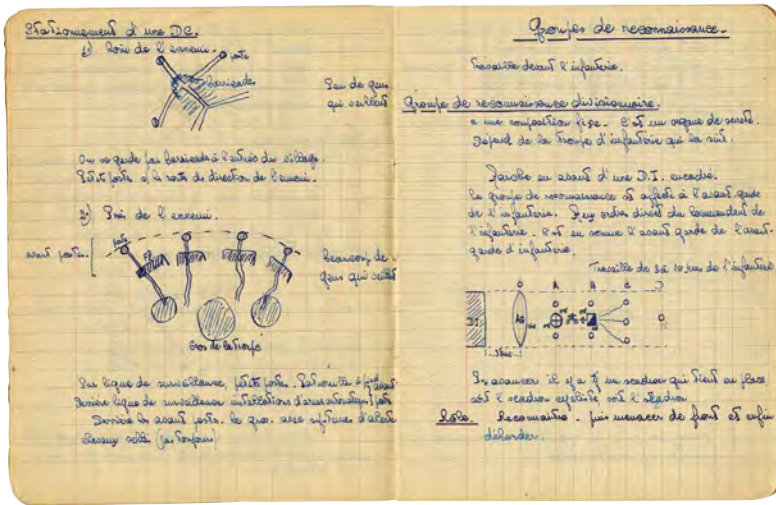 Stationnement d'une DC.
1°) Loin de l'ennemi.
poste
barricade
Peu de gens
qui veillent
On se garde par barricade à l'entrée du village.
Petits postes s/ la route de direction de l'ennemi.
2°) Près de l'ennemi.
avant postes.
poste
beaucoup de
gens qui veillent
Gros de la troupe
Sur ligne de surveillance, petits postes. Patrouille à pied avant
Derrière ligne de surveillance installations d'armes automatiques
Derrière les avant postes. le gros. avec systèmes d'alerte
chevaux sellés (pas toujours)
Groupes de reconnaissance.
Travaille devant l'infanterie.
Groupe de reconnaissance divisionnaire.
a une composition fixe. C'est un organe de sureté.
Dépend de la troupe d'infanterie qui la suit.
Marche en avant d'une D.I. encadré.
Le groupe de reconnaissance est affecté à l'avant garde
de l'infanterie. Aux ordres direct du Commandant de
l'infanterie. C'est en somme l'avant garde de l'avant-
garde d'infanterie.
Travaille de 8 à 10 kms de l'infanterie
A B C D
DI
AG
En avancer il y a un escadron qui tient en place
soit l'escadron cycliste soit l'escadron
Rôle. Reconnaitre. puis menacer de front et enfin
déborder.